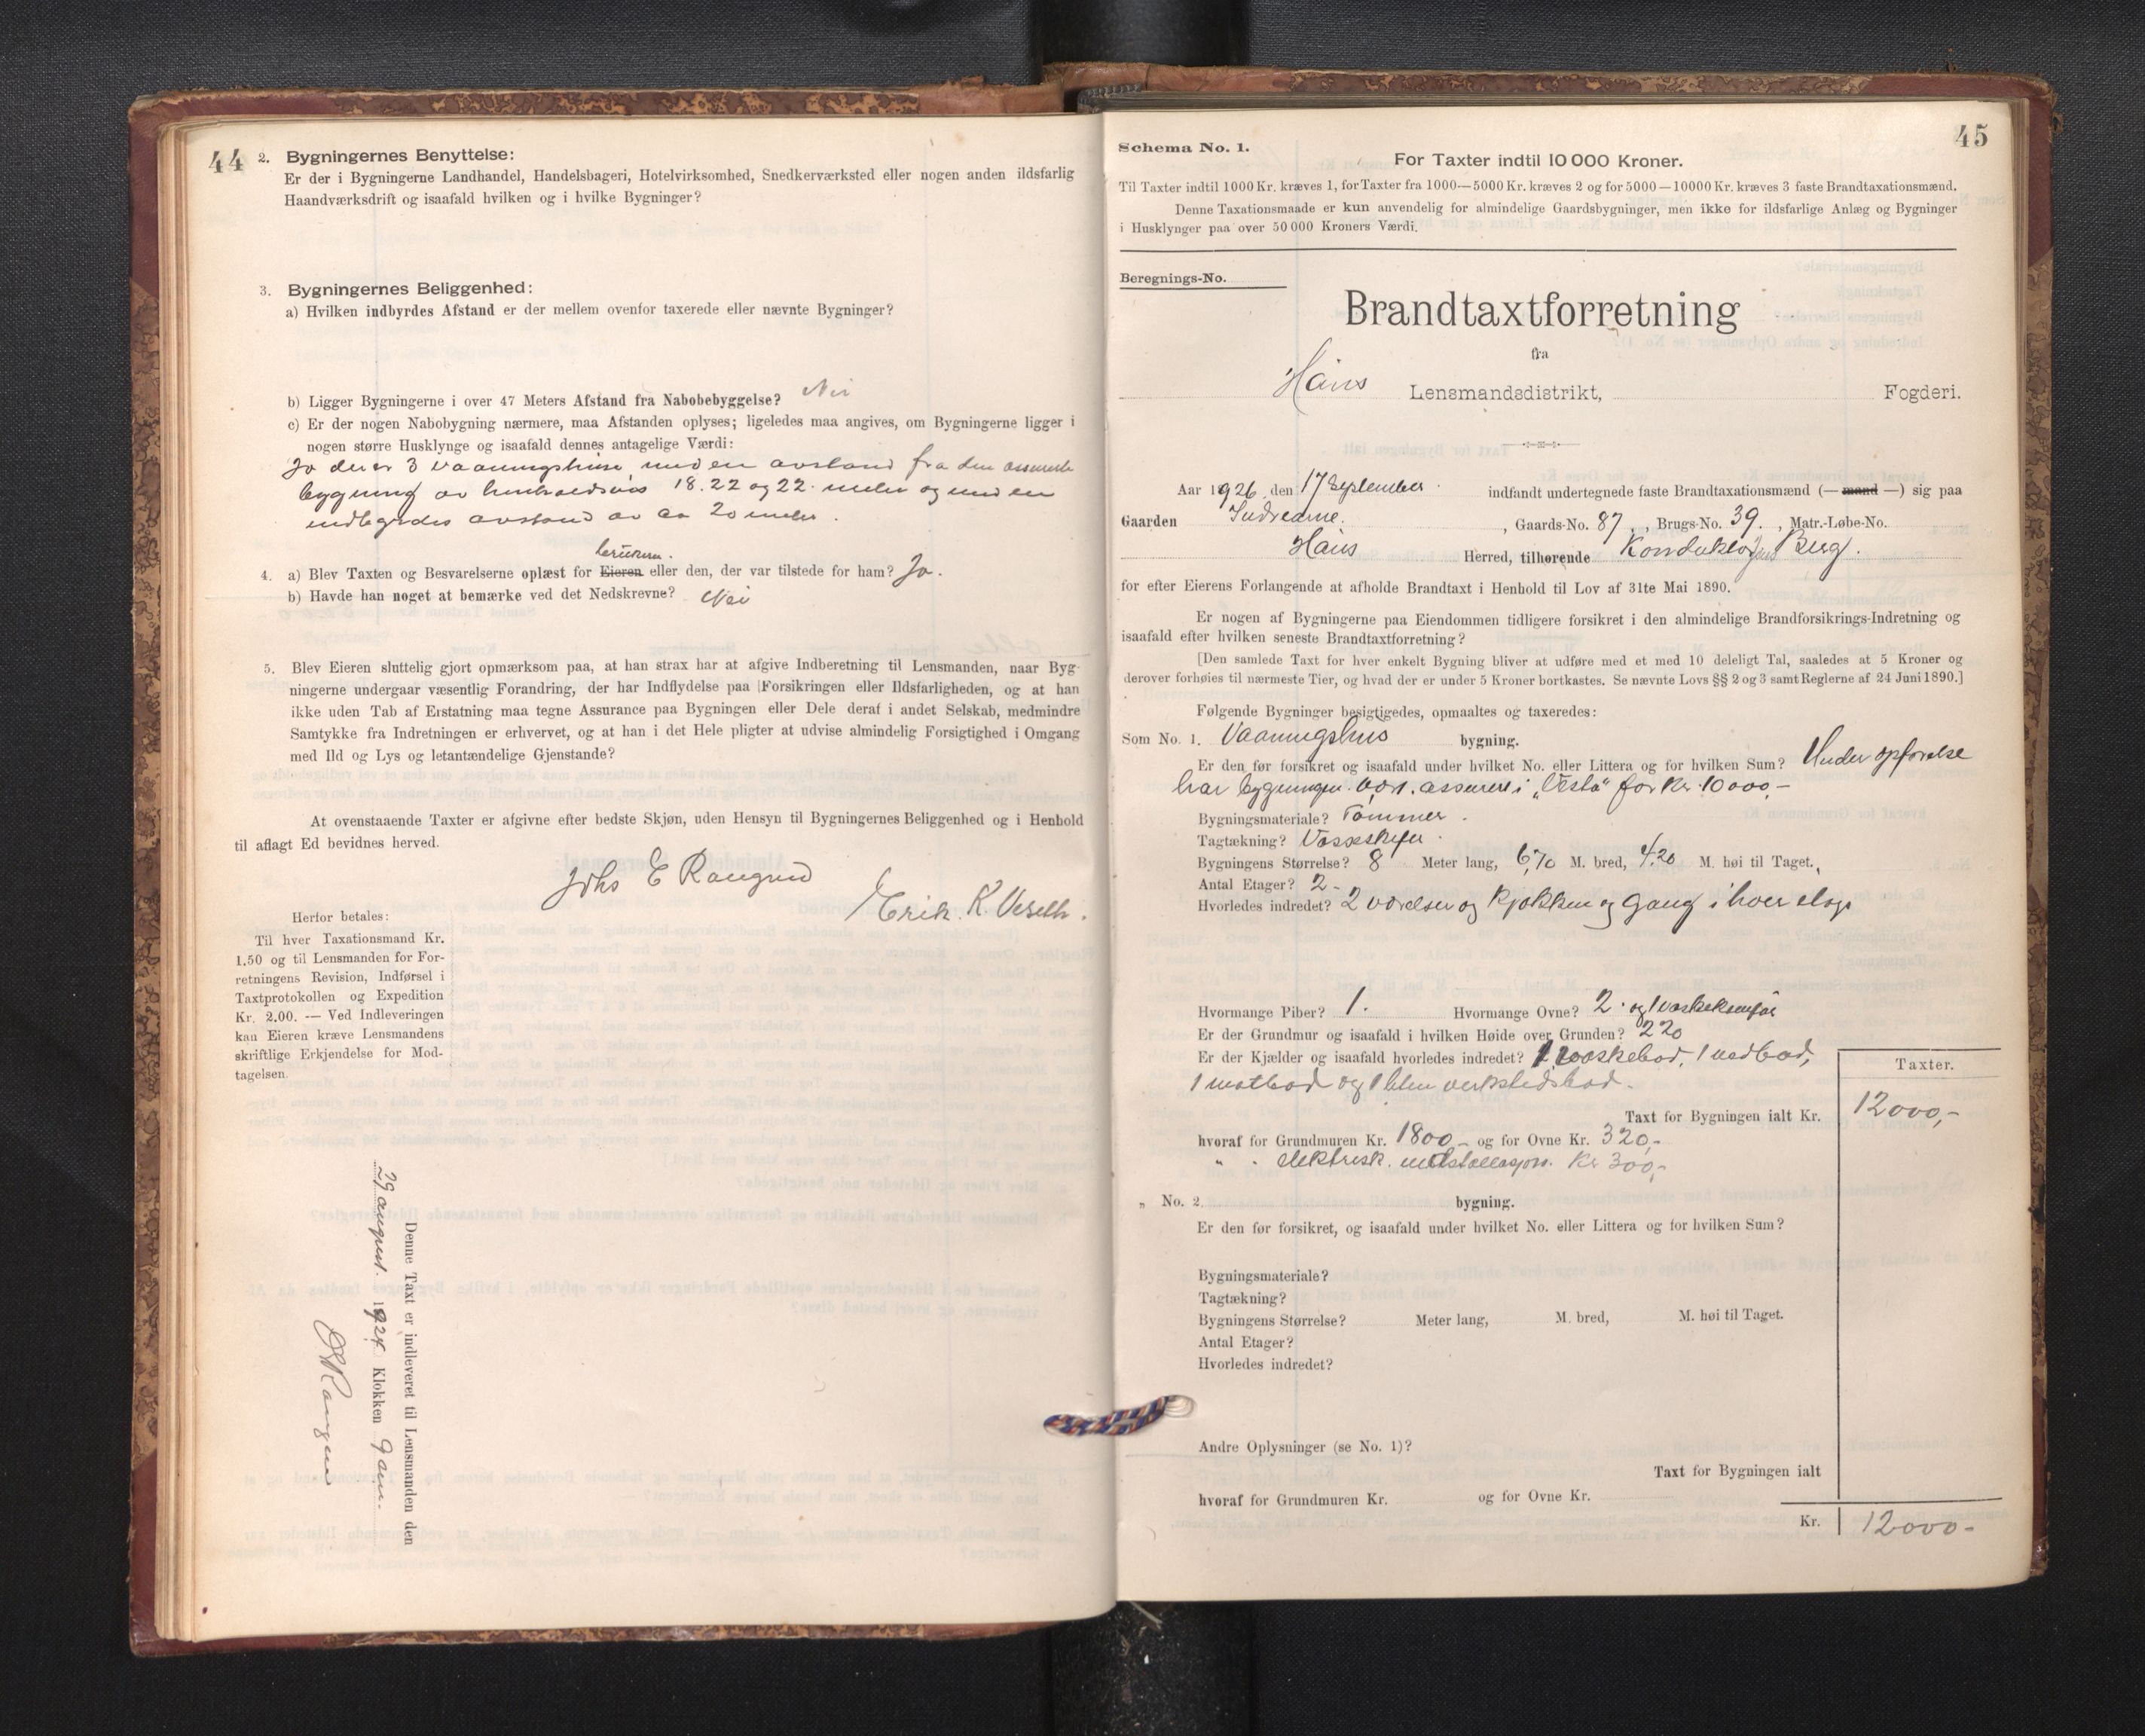 44
2. Bygningernes Benyttelse:
Er der i Bygningerne Landhandel, Handelsbageri, Hotelvirksomhed, Snedkerværksted eller nogen anden ildsfarlig
Haandværksdrift og isaafald hvilken og i hvilke Bygninger?
3. Bygningernes Beliggenhed:
a) Hvilken indbyrdes Afstand er der mellem ovenfor taxerede eller nævnte Bygninger?
b) Ligger Bygningerne i over 47 Meters Afstand fra Nabobebyggelse? Nei
c) Er der nogen Nabobygning nærmere, maa Afstanden oplyses; ligeledes maa angives, om Bygningerne ligger i
nogen større Husklynge og isaafald dennes antagelige Værdi:
Jo der er 3 vaaningshuse med en avstand fra den
bygning av henholdsvis 18. 22 og 22 meter og med en
indbyrdes avstand av ca 20 meter.
brukeren.
4. a) Blev Taxten og Besvarelserne oplæst for Eieren eller den, der var tilstede for ham? Ja.
b) Havde han noget at bemærke ved det Nedskrevne? Nei
5. Blev Eieren sluttelig gjort opmærksom paa, at han strax har at afgive Indberetning til Lensmanden, naar Byg-
ningerne undergaar væsentlig Forandring, der har Indflydelse paa Forsikringen eller Ildsfarligheden, og at han
ikke uden Tab af Erstatning maa tegne Assurance paa Bygningen eller Dele deraf i andet Selskab, medmindre
Samtykke fra Indretningen er erhvervet, og at han i det Hele pligter at udvise almindelig Forsigtighed i Omgang
med Ild og Lys og letantændelige Gjenstande?
At ovenstaaende Taxter er afgivne efter bedste Skjøn, uden Hensyn til Bygningernes Beliggenhed og i Henhold
til aflagt Ed bevidnes herved.
Johs E Rongved
Erik K.
Herfor betales:
Til hver Taxationsmand Kr.
1.50 og til Lensmanden for For-
retningens Revision, Indførsel i
Taxtprotokollen og Expedition
Kr. 2.00. — Ved Indleveringen
kan Eieren kræve Lensmandens
skriftlige Erkjendelse for Mod-
tagelsen.
Denne Taxt er indleveret til Lensmanden den
29 august. 1924 Klokken 9 am.
45
Schema No. 1.
For Taxter indtil 10 000 Kroner.
Til Taxter indtil 1000 Kr. kræves 1, for Taxter fra 1000—5000 Kr. kræves 2 og for 5000—10000 Kr. kræves 3 faste Brandtaxationsmænd.
Denne Taxationsmaade er kun anvendelig for almindelige Gaardsbygninger, men ikke for ildsfarlige Anlæg og Bygninger
i Husklynger paa over 50 000 Kroners Værdi.
Beregnings-No.
Brandtaxtforretning
fra
Haus Lensmandsdistrikt, Fogderi.
Aar 1926, den 17 September. indfandt undertegnede faste Brandtaxationsmænd (— mand —) sig paa
Gaarden Indrearne. , Gaards-No. 87, , Brugs-No. 39. , Matr.-Løbe-No.
Haus Herred, tilhørende Konduktør Jens Berg.
for efter Eierens Forlangende at afholde Brandtaxt i Henhold til Lov af 31te Mai 1890.
Er nogen af Bygningerne paa Eiendommen tidligere forsikret i den almindelige Brandforsikrings-Indretning og
isaafald efter hvilken seneste Brandtaxtforretning?
[Den samlede Taxt for hver enkelt Bygning bliver at udføre med et med 10 deleligt Tal, saaledes at 5 Kroner og
derover forhøies til nærmeste Tier, og hvad der er under 5 Kroner bortkastes. Se nævnte Lovs §§ 2 og 3 samt Reglerne af 24 Juni 1890.]
Følgende Bygninger besigtigedes, opmaaltes og taxeredes:
Som No. 1. Vaaningshus bygning.
Er den før forsikret og isaafald under hvilket No. eller Littera og for hvilken Sum? Under opførelse
har bygningen vært assurert i „Vesta“ for Kr. 10000,-
Bygningsmateriale? Tømmer.
Tagtækning? Vosseskifer.
Bygningens Størrelse? 8 Meter lang, 6,70 M. bred, 4.20 M. høi til Taget.
Antal Etager? 2-
Hvorledes indredet? 2 værelser og Kjøkken og gang i hver etage
Hvormange Piber? 1. Hvormange Ovne? 2 og 1
Er der Grundmur og isaafald i hvilken Høide over Grunden? 220
Er der Kjælder og isaafald hvorledes indredet? 1 vaskebod, 1 vedbod,
1 matbod og 1 liten verkstedsbod.
Taxter.
Taxt for Bygningen ialt Kr. 12000,-
hvoraf for Grundmuren Kr. 1800,- og for Ovne Kr. 320,-
" " elektrisk. installasjon. Kr 300,-
„ No. 2 bygning.
Er den før forsikret, og isaafald under hvilket No. eller Littera og for hvilken Sum?
Bygningsmateriale?
Tagtækning?
Bygningens Størrelse? Meter lang, M. bred, M. høi til Taget.
Antal Etager?
Hvorledes indredet?
Andre Oplysninger (se No. 1)?
Taxt for Bygningen ialt
hvoraf for Grundmuren Kr. og for Ovne Kr.
Kr. 12000-